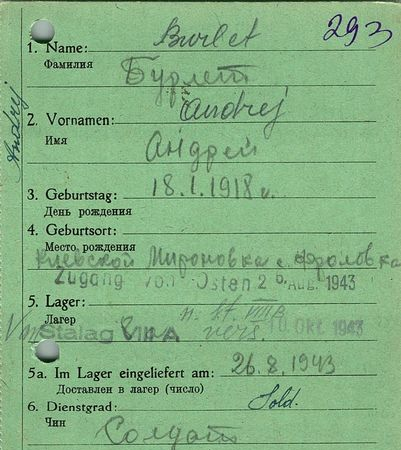 293
1. Name: Burlet
Фамилия Бурлет
Andrej
2. Vornamen: Andrej
Имя Андрей
3. Geburtstag: 18.1.1918 г.
День рождения
4. Geburtsort:
Место рождения
Киевской Мироновка с. Фроловка
Zugang von Osten 26. Aug. 1943
5. Lager: n. St. VIII B
Лагер vers. 10. Okt. 1943
Von Stalag VIII A
5a. Im Lager eingeliefert am: 26.8.1943
Доставлен в лагер (число)
6. Dienstgrad: Sold.
Чин Солдат